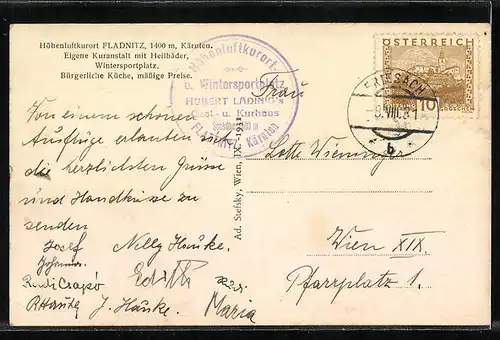 Höhenluftkurort FLADNITZ, 1400 m, Kärnten.
Eigene Kuranstalt mit Heilbäder,
Wintersportplatz,
Bürgerliche Küche, mäßige Preise.
Höhenluftkurort
u. Wintersportplatz
HUBERT LADINIG's
Gast- u. Kurhaus
FLADNITZ, Kärnten
ÖSTERREICH
10
FRIESACH
8.VII.31
b
Frau
Lotte
Wien XIX.
Pfarrplatz 1.
Ad. Stefsky, Wien, IX.
Von einem schönen
Ausfluge erlauben wir
die herzlichsten Grüsse
und Handküsse zu
senden
Josef Nelly Hauke.
Johanna
Rudi Csapó Edith
J. Hauke. Maria